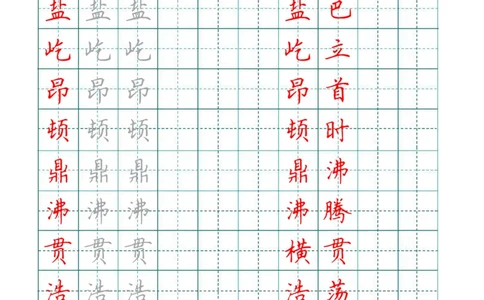 盐盐盐 盐巴
屹屹屹 屹立
昂昂昂 昂首
顿顿顿 顿时
鼎鼎鼎 鼎沸
沸沸沸 沸腾
贯贯贯 横贯
浩浩浩 浩荡